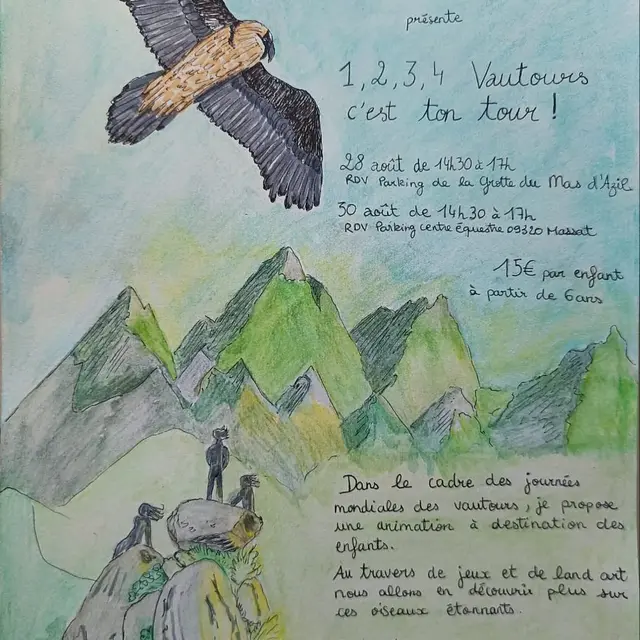 présente
1, 2, 3, 4 Vautours
c'est ton tour !
28 août de 14h30 à 17h
RDV Parking de la Grotte du Mas d'Azil
30 août de 14h30 à 17h
RDV Parking centre Équestre 09320 Massat
15€ par enfant
à partir de 6 ans
Dans le cadre des journées
mondiales des vautours, je propose
une animation à destination des
enfants.
Au travers de jeux et de land art
nous allons en découvrir plus sur
ces oiseaux étonnants.